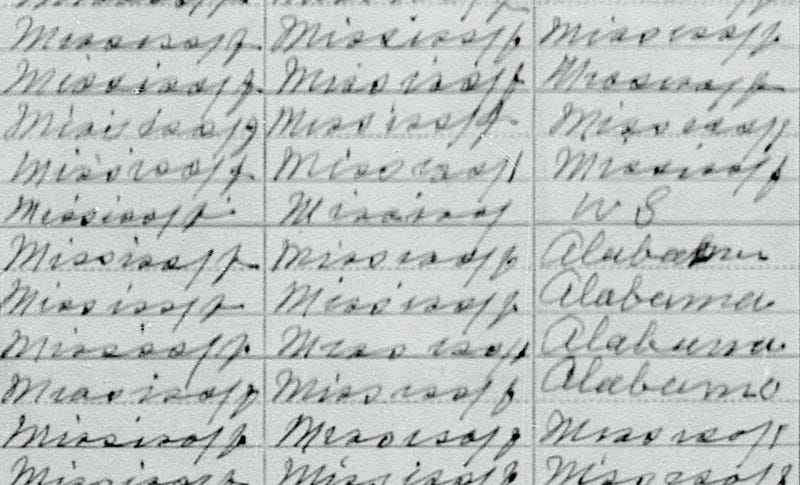 Mississippi Mississippi Mississippi
Mississippi Mississippi Mississippi
Mississippi Mississippi Mississippi
Mississippi Mississippi Mississippi
Mississippi Mississippi U S
Mississippi Mississippi Alabama
Mississippi Mississippi Alabama
Mississippi Mississippi Alabama
Mississippi Mississippi Alabama
Mississippi Mississippi Mississippi
Mississippi Mississippi Mississippi